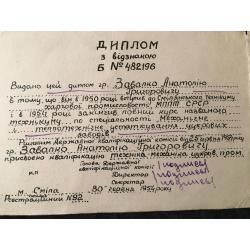 ДИПЛОМ
з відзнакою
Б № 482196
Видано цей диплом гр. Завалко Анатолію
Григоровичу
в тому, що він в 1950 році вступив до Смілянського технікуму
харчової промисловості, МППТ СРСР
і в 1954 році закінчив повний курс названого
технікуму, по спеціальності Механічне
і теплотехнічне устаткування цукрових
заводів
Рішенням Державної кваліфікаційної комісії від
гр. Завалко Анатолію Григоровичу
присвоєно кваліфікацію техніка-механіка цукров. пром.
Голова Державної
кваліфікаційної комісії
Директор
Секретар
м. Сміла 1954 року
Реєстраційний № 92